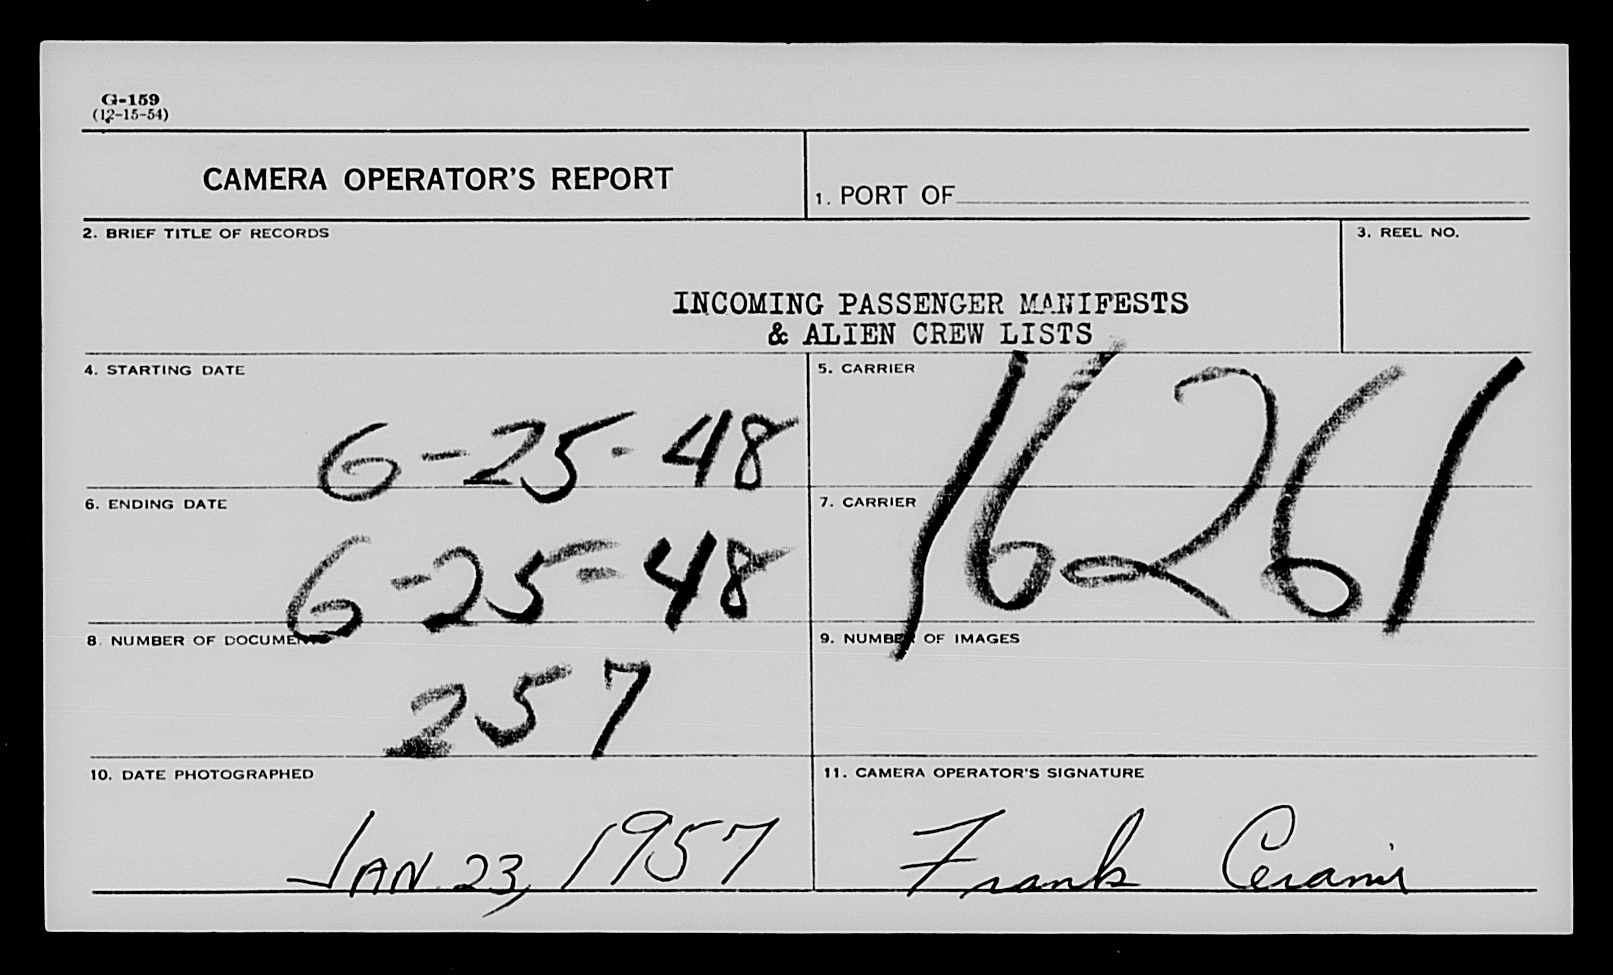 G-159
(12-15-54)
CAMERA OPERATOR'S REPORT
1. PORT OF
2. BRIEF TITLE OF RECORDS
3. REEL NO.
INCOMING PASSENGER MANIFESTS
& ALIEN CREW LISTS
4. STARTING DATE
6-25-48
5. CARRIER
16261
6. ENDING DATE
6-25-48
7. CARRIER
8. NUMBER OF DOCUMENTS
257
9. NUMBER OF IMAGES
10. DATE PHOTOGRAPHED
JAN. 23, 1957
11. CAMERA OPERATOR'S SIGNATURE
Frank